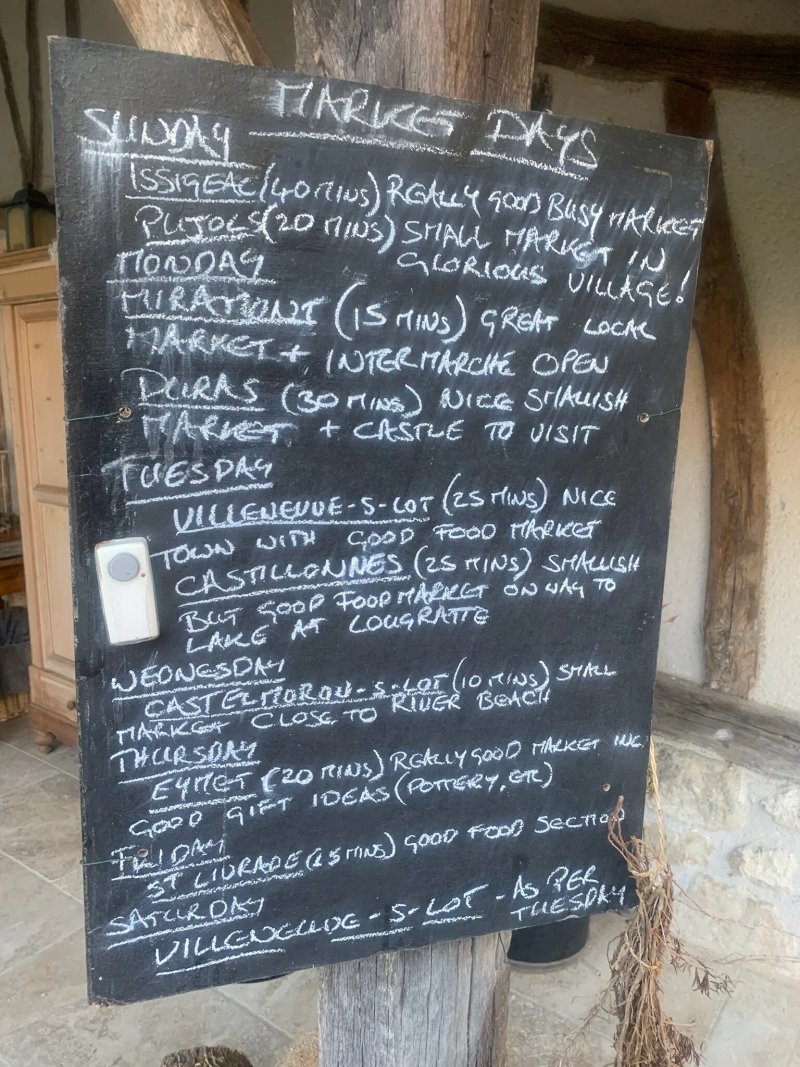 MARKET DAYS
SUNDAY
ISSIGEAC (40 MINS) REALLY GOOD BUSY MARKET
PUJOLS (20 MINS) SMALL MARKET IN
GLORIOUS VILLAGE!
MONDAY
MIRAMONT (15 MINS) GREAT LOCAL
MARKET + INTERMARCHE OPEN
DURAS (30 MINS) NICE SMALLISH
MARKET + CASTLE TO VISIT
TUESDAY
VILLENEUVE-S-LOT (25 MINS) NICE
TOWN WITH GOOD FOOD MARKET
CASTILLONNES (25 MINS) SMALLISH
BUT GOOD FOOD MARKET ON WAY TO
LAKE AT LOUGRATTE
WEDNESDAY
CASTELMORON-S-LOT (10 MINS) SMALL
MARKET CLOSE TO RIVER BEACH
THURSDAY
EYMET (20 MINS) REALLY GOOD MARKET INC.
GOOD GIFT IDEAS (POTTERY, ETC)
FRIDAY
ST LIVRADE (25 MINS) GOOD FOOD SECTION
SATURDAY
VILLENEUVE-S-LOT - AS PER
TUESDAY